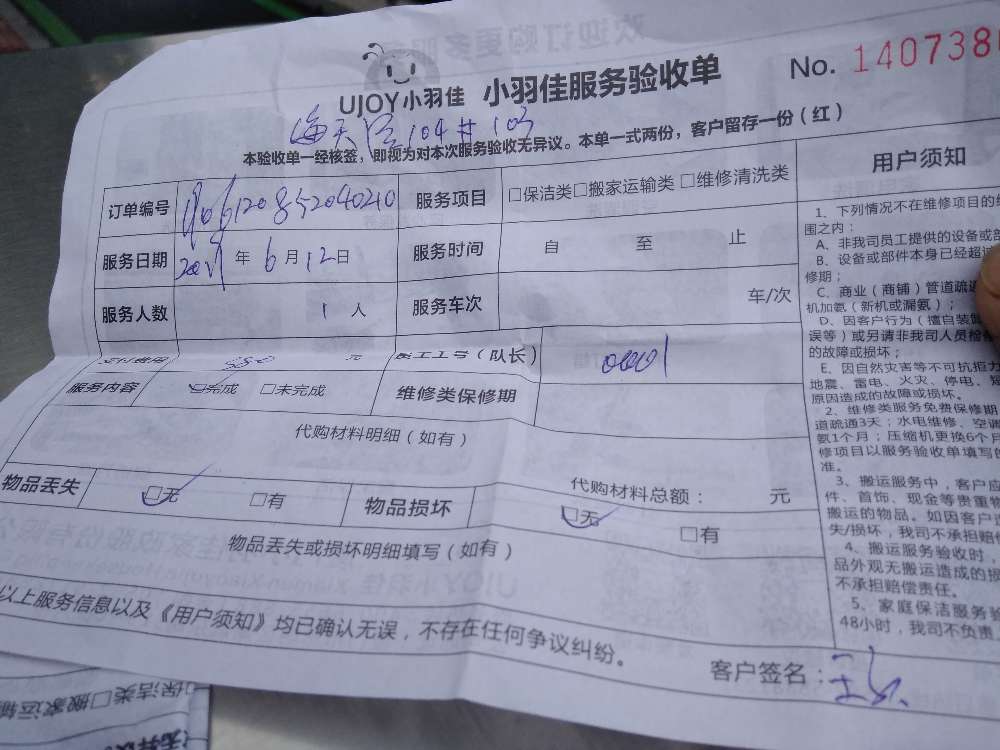 UJOY小羽佳 小羽佳服务验收单 No. 140738
海天 104# 103
本验收单一经核签，即视为对本次服务验收无异议。本单一式两份，客户留存一份（红）
订单编号 服务项目 □保洁类□搬家运输类 □维修清洗类
服务日期 年 6 月 12 日 服务时间 自 至 止
服务人数 1 人 服务车次 车/次
元 （队长） 0001
服务内容 □完成 □未完成 维修类保修期
代购材料明细（如有）
代购材料总额： 元
物品丢失 □无 □有 物品损坏 □无 □有
物品丢失或损坏明细填写（如有）
以上服务信息以及《用户须知》均已确认无误，不存在任何争议纠纷。
客户签名：
用户须知
1、下列情况不在维修项目的
围之内：
A、非我司员工提供的设备或部
B、设备或部件本身已经超
修期；
C、商业（商铺）管道疏通
机加氨（新机或漏氨）；
D、因客户行为（擅自装
误等）或另请非我司人员
的故障或损坏；
E、因自然灾害等不可抗拒
地震、雷电、火灾、停电、
原因造成的故障或损坏。
2、维修类服务免费保修期
道疏通3天；水电维修、空调
氨1个月；压缩机更换6个月
修项目以服务验收单填写的
准。
3、搬运服务中，客户应
件、首饰、现金等贵重物
搬运的物品。如因客户
失/损坏，我司不承担赔
4、搬运服务验收时，
品外观无搬运造成的损
不承担赔偿责任。
5、家庭保洁服务
48小时，我司不负责
保洁类□搬家运输